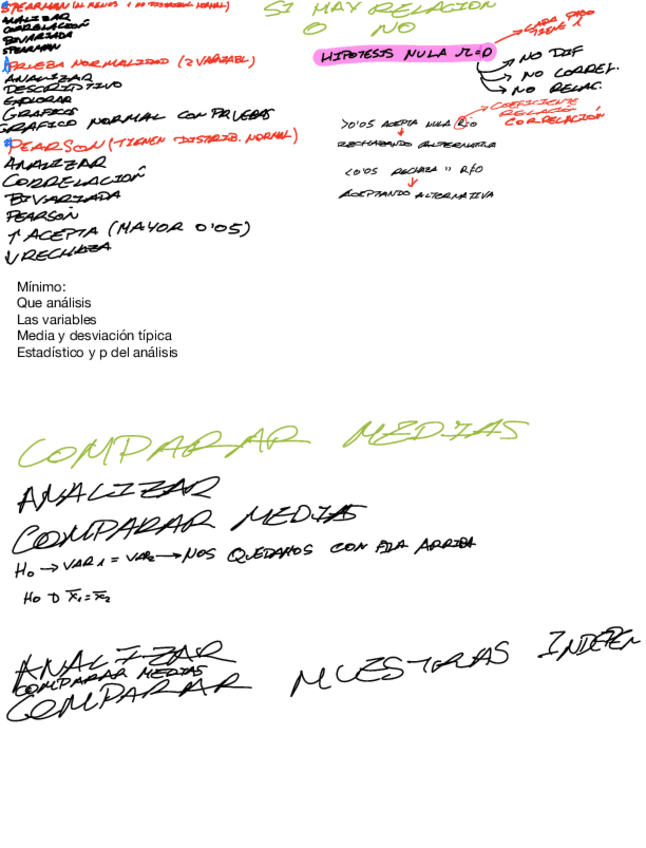 SPEARMAN (AL MENOS 1 NO DISTRIBUC. NORMAL)
ANALIZAR
CORRELACIÓN
BIVARIADA
SPEARMAN
PRUEBA NORMALIDAD (2 VARIABL)
ANALIZAR
DESCRIPTIVO
EXPLORAR
GRAFICOS
GRAFICO NORMAL CON PRUEBAS
PEARSON (TIENEN DISTRIB. NORMAL)
ANALIZAR
CORRELACIÓN
BIVARIADA
PEARSON
↑ ACEPTA (MAYOR 0'05)
↓ RECHAZA
SI HAY RELACION
O NO
CADA TIENE
HIPOTESIS NULA R=0
→ NO DIF
→ NO CORREL.
→ NO RELAC.
COEFICIENTE
RELACIÓN
CORRELACIÓN
>0'05 ACEPTA NULA R=0
RECHAZANDO ALTERNATIVA
<0'05 RECHAZA " R≠0
ACEPTANDO ALTERNATIVA
Mínimo:
Que análisis
Las variables
Media y desviación típica
Estadístico y p del análisis
COMPARAR MEDIAS
ANALIZAR
COMPARAR MEDIAS
H₀ → VAR₁ = VAR₂ → NOS QUEDAMOS CON FILA ARRIBA
H₀ → x̄₁ = x̄₂
ANALIZAR
COMPARAR MEDIAS
COMPARAR MUESTRAS INDEPEN